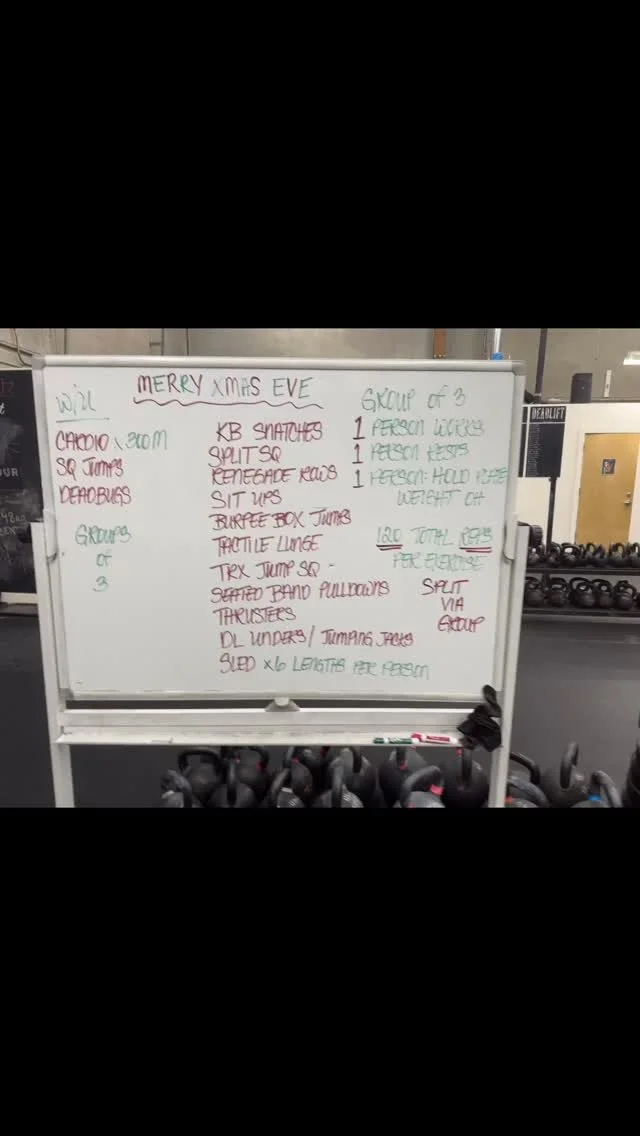 MERRY XMAS EVE
W/U
CARDIO x 300M
SQ JUMPS
DEADBUGS
GROUPS
OF
3
KB SNATCHES
SPLIT SQ
RENEGADE ROWS
SIT UPS
BURPEE BOX JUMPS
TACTILE LUNGE
TRX JUMP SQ -
SEATED BAND PULLDOWNS
THRUSTERS
DL UNDERS / JUMPING JACKS
SLED x6 LENGTHS PER PERSON
GROUP OF 3
1 PERSON WORKS
1 PERSON RESTS
1 PERSON: HOLD PLATE
WEIGHT OH
120 TOTAL REPS
PER EXERCISE
SPLIT
VIA
GROUP
DEADLIFT